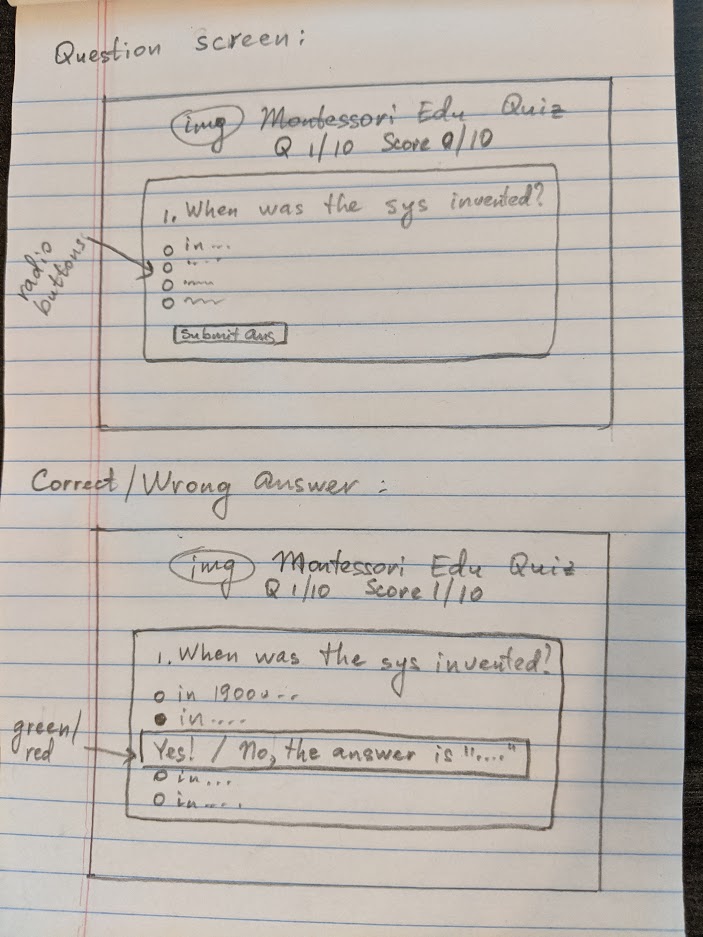 Question screen:
img Montessori Edu Quiz
Q 1/10 Score 0/10
1. When was the sys invented?
in...
radio
buttons
submit ans
Correct/Wrong answer:
img Montessori Edu Quiz
Q 1/10 Score 1/10
1. When was the sys invented?
in 1900...
in....
green/
red
Yes! / No, the answer is "...."
in...
in....